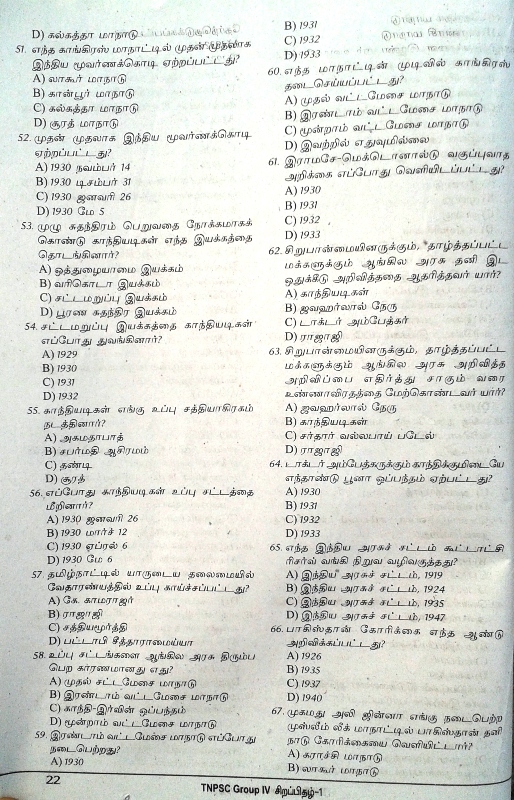 D) கல்கத்தா மாநாடு
51. எந்த காங்கிரஸ் மாநாட்டில் முதன் முதலாக
இந்திய மூவர்ணக்கொடி ஏற்றப்பட்டது?
A) லாகூர் மாநாடு
B) கான்பூர் மாநாடு
C) கல்கத்தா மாநாடு
D) சூரத் மாநாடு
52. முதன் முதலாக இந்திய மூவர்ணக்கொடி
ஏற்றப்பட்டது?
A) 1930 நவம்பர் 14
B) 1930 டிசம்பர் 31
C) 1930 ஜனவரி 26
D) 1930 மே 5
53. முழு சுதந்திரம் பெறுவதை நோக்கமாகக்
கொண்டு காந்தியடிகள் எந்த இயக்கத்தை
தொடங்கினார்?
A) ஒத்துழையாமை இயக்கம்
B) வரிகொடா இயக்கம்
C) சட்டமறுப்பு இயக்கம்
D) பூரண சுதந்திர இயக்கம்
54. சட்டமறுப்பு இயக்கத்தை காந்தியடிகள்
எப்போது துவங்கினார்?
A) 1929
B) 1930
C) 1931
D) 1932
55. காந்தியடிகள் எங்கு உப்பு சத்தியாகிரகம்
நடத்தினார்?
A) அகமதாபாத்
B) சபர்மதி ஆசிரமம்
C) தண்டி
D) சூரத்
56. எப்போது காந்தியடிகள் உப்பு சட்டத்தை
மீறினார்?
A) 1930 ஜனவரி 26
B) 1930 மார்ச் 12
C) 1930 ஏப்ரல் 6
D) 1930 மே 6
57. தமிழ்நாட்டில் யாருடைய தலைமையில்
வேதாரண்யத்தில் உப்பு காய்ச்சப்பட்டது?
A) கே. காமராஜர்
B) ராஜாஜி
C) சத்தியமூர்த்தி
D) பட்டாபி சீத்தாராமைய்யா
58. உப்பு சட்டங்களை ஆங்கில அரசு திரும்ப
பெற காரணமானது எது?
A) முதல் சட்டமேசை மாநாடு
B) இரண்டாம் வட்டமேசை மாநாடு
C) காந்தி-இர்வின் ஒப்பந்தம்
D) மூன்றாம் வட்டமேசை மாநாடு
59. இரண்டாம் வட்டமேசை மாநாடு எப்போது
நடைபெற்றது?
A) 1930
B) 1931
C) 1932
D) 1933
60. எந்த மாநாட்டின் முடிவில் காங்கிரஸ்
தடைசெய்யப்பட்டது?
A) முதல் வட்டமேசை மாநாடு
B) இரண்டாம் வட்டமேசை மாநாடு
C) மூன்றாம் வட்டமேசை மாநாடு
D) இவற்றில் எதுவுமில்லை
61. இராம்சே-மெக்டொனால்டு வகுப்புவாத
அறிக்கை எப்போது வெளியிடப்பட்டது?
A) 1930
B) 1931
C) 1932
D) 1933
62. சிறுபான்மையினருக்கும், தாழ்த்தப்பட்ட
மக்களுக்கும் ஆங்கில அரசு தனி இட
ஒதுக்கீடு அறிவித்ததை ஆதரித்தவர் யார்?
A) காந்தியடிகள்
B) ஜவஹர்லால் நேரு
C) டாக்டர் அம்பேத்கர்
D) ராஜாஜி
63. சிறுபான்மையினருக்கும், தாழ்த்தப்பட்ட
மக்களுக்கும் ஆங்கில அரசு அறிவித்த
அறிவிப்பை எதிர்த்து சாகும் வரை
உண்ணாவிரதத்தை மேற்கொண்டவர் யார்?
A) ஜவஹர்லால் நேரு
B) காந்தியடிகள்
C) சர்தார் வல்லபாய் படேல்
D) ராஜாஜி
64. டாக்டர் அம்பேத்கருக்கும் காந்திக்குமிடையே
எந்தாண்டு பூனா ஒப்பந்தம் ஏற்பட்டது?
A) 1930
B) 1931
C) 1932
D) 1933
65. எந்த இந்திய அரசுச் சட்டம் கூட்டாட்சி
ரிசர்வ் வங்கி நிறுவ வழிவகுத்தது?
A) இந்திய அரசுச் சட்டம், 1919
B) இந்திய அரசுச் சட்டம், 1924
C) இந்திய அரசுச் சட்டம், 1935
D) இந்திய அரசுச் சட்டம், 1947
66. பாகிஸ்தான் கோரிக்கை எந்த ஆண்டு
அறிவிக்கப்பட்டது?
A) 1926
B) 1935
C) 1937
D) 1940
67. முகமது அலி ஜின்னா எங்கு நடைபெற்ற
முஸ்லீம் லீக் மாநாட்டில் பாகிஸ்தான் தனி
நாடு கோரிக்கையை வெளியிட்டார்?
A) கராச்சி மாநாடு
B) லாகூர் மாநாடு
22
TNPSC Group IV சிறப்பிதழ்-1